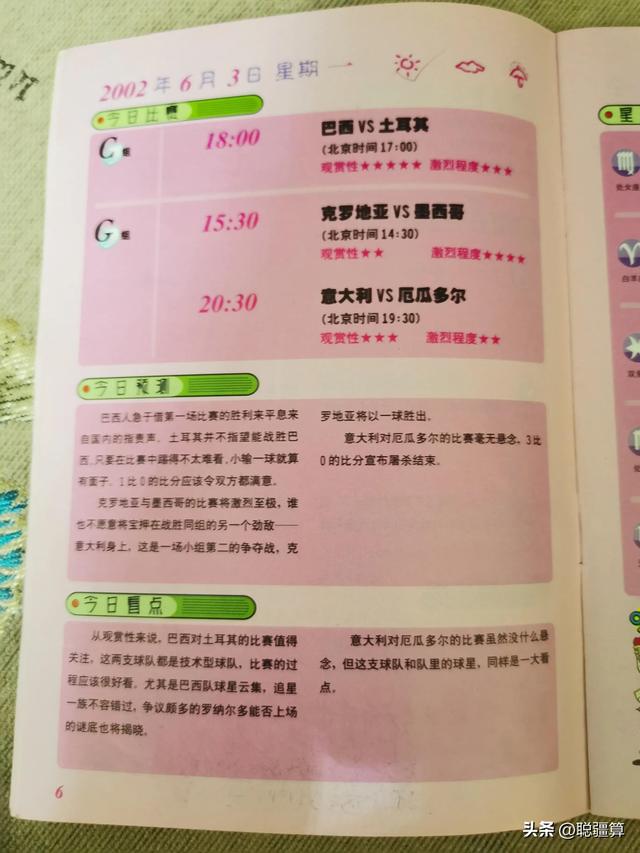 2002年6月3日 星期一
今日比赛
C组
18:00
巴西VS土耳其
(北京时间17:00)
观赏性★★★★★ 激烈程度★★★
G组
15:30
克罗地亚VS墨西哥
(北京时间14:30)
观赏性★★ 激烈程度★★★★
20:30
意大利VS厄瓜多尔
(北京时间19:30)
观赏性★★★ 激烈程度★★
今日预测
巴西人急于借第一场比赛的胜利来平息来
自国内的指责声。土耳其并不指望能战胜巴
西,只要在比赛中踢得不太难看,小输一球就算
有面子。1比0的比分应该令双方都满意。
克罗地亚与墨西哥的比赛将激烈至极,谁
也不愿意将宝押在战胜同组的另一个劲敌——
意大利身上,这是一场小组第二的争夺战,克
罗地亚将以一球胜出。
意大利对厄瓜多尔的比赛毫无悬念,3比
0的比分宣布屠杀结束。
今日看点
从观赏性来说,巴西对土耳其的比赛值得
关注,这两支球队都是技术型球队,比赛的过
程应该很好看。尤其是巴西队球星云集,追星
一族不容错过,争议颇多的罗纳尔多能否上场
的谜底也将揭晓。
意大利对厄瓜多尔的比赛虽然没什么悬
念,但这支球队和队里的球星,同样是一大看
点。
6
星
处女座
白羊座
头条 @聪疆算